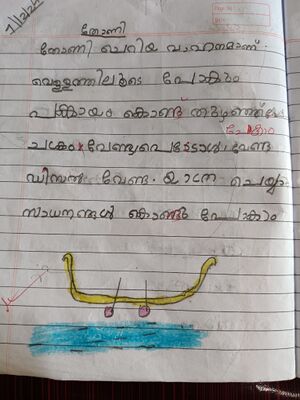 7/2/22
തോണി
തോണി ചെറിയ വാഹനമാണ്.
വെള്ളത്തിലൂടെ പോകും
പങ്കായം കൊണ്ട് തുഴഞ്ഞ്
പോകും
ചക്രം വേണ്ട പെട്രോൾ വേണ്ട
ഡീസൽ വേണ്ട. യാത്ര ചെയ്യാം
സാധനങ്ങൾ കൊണ്ടു പോകാം